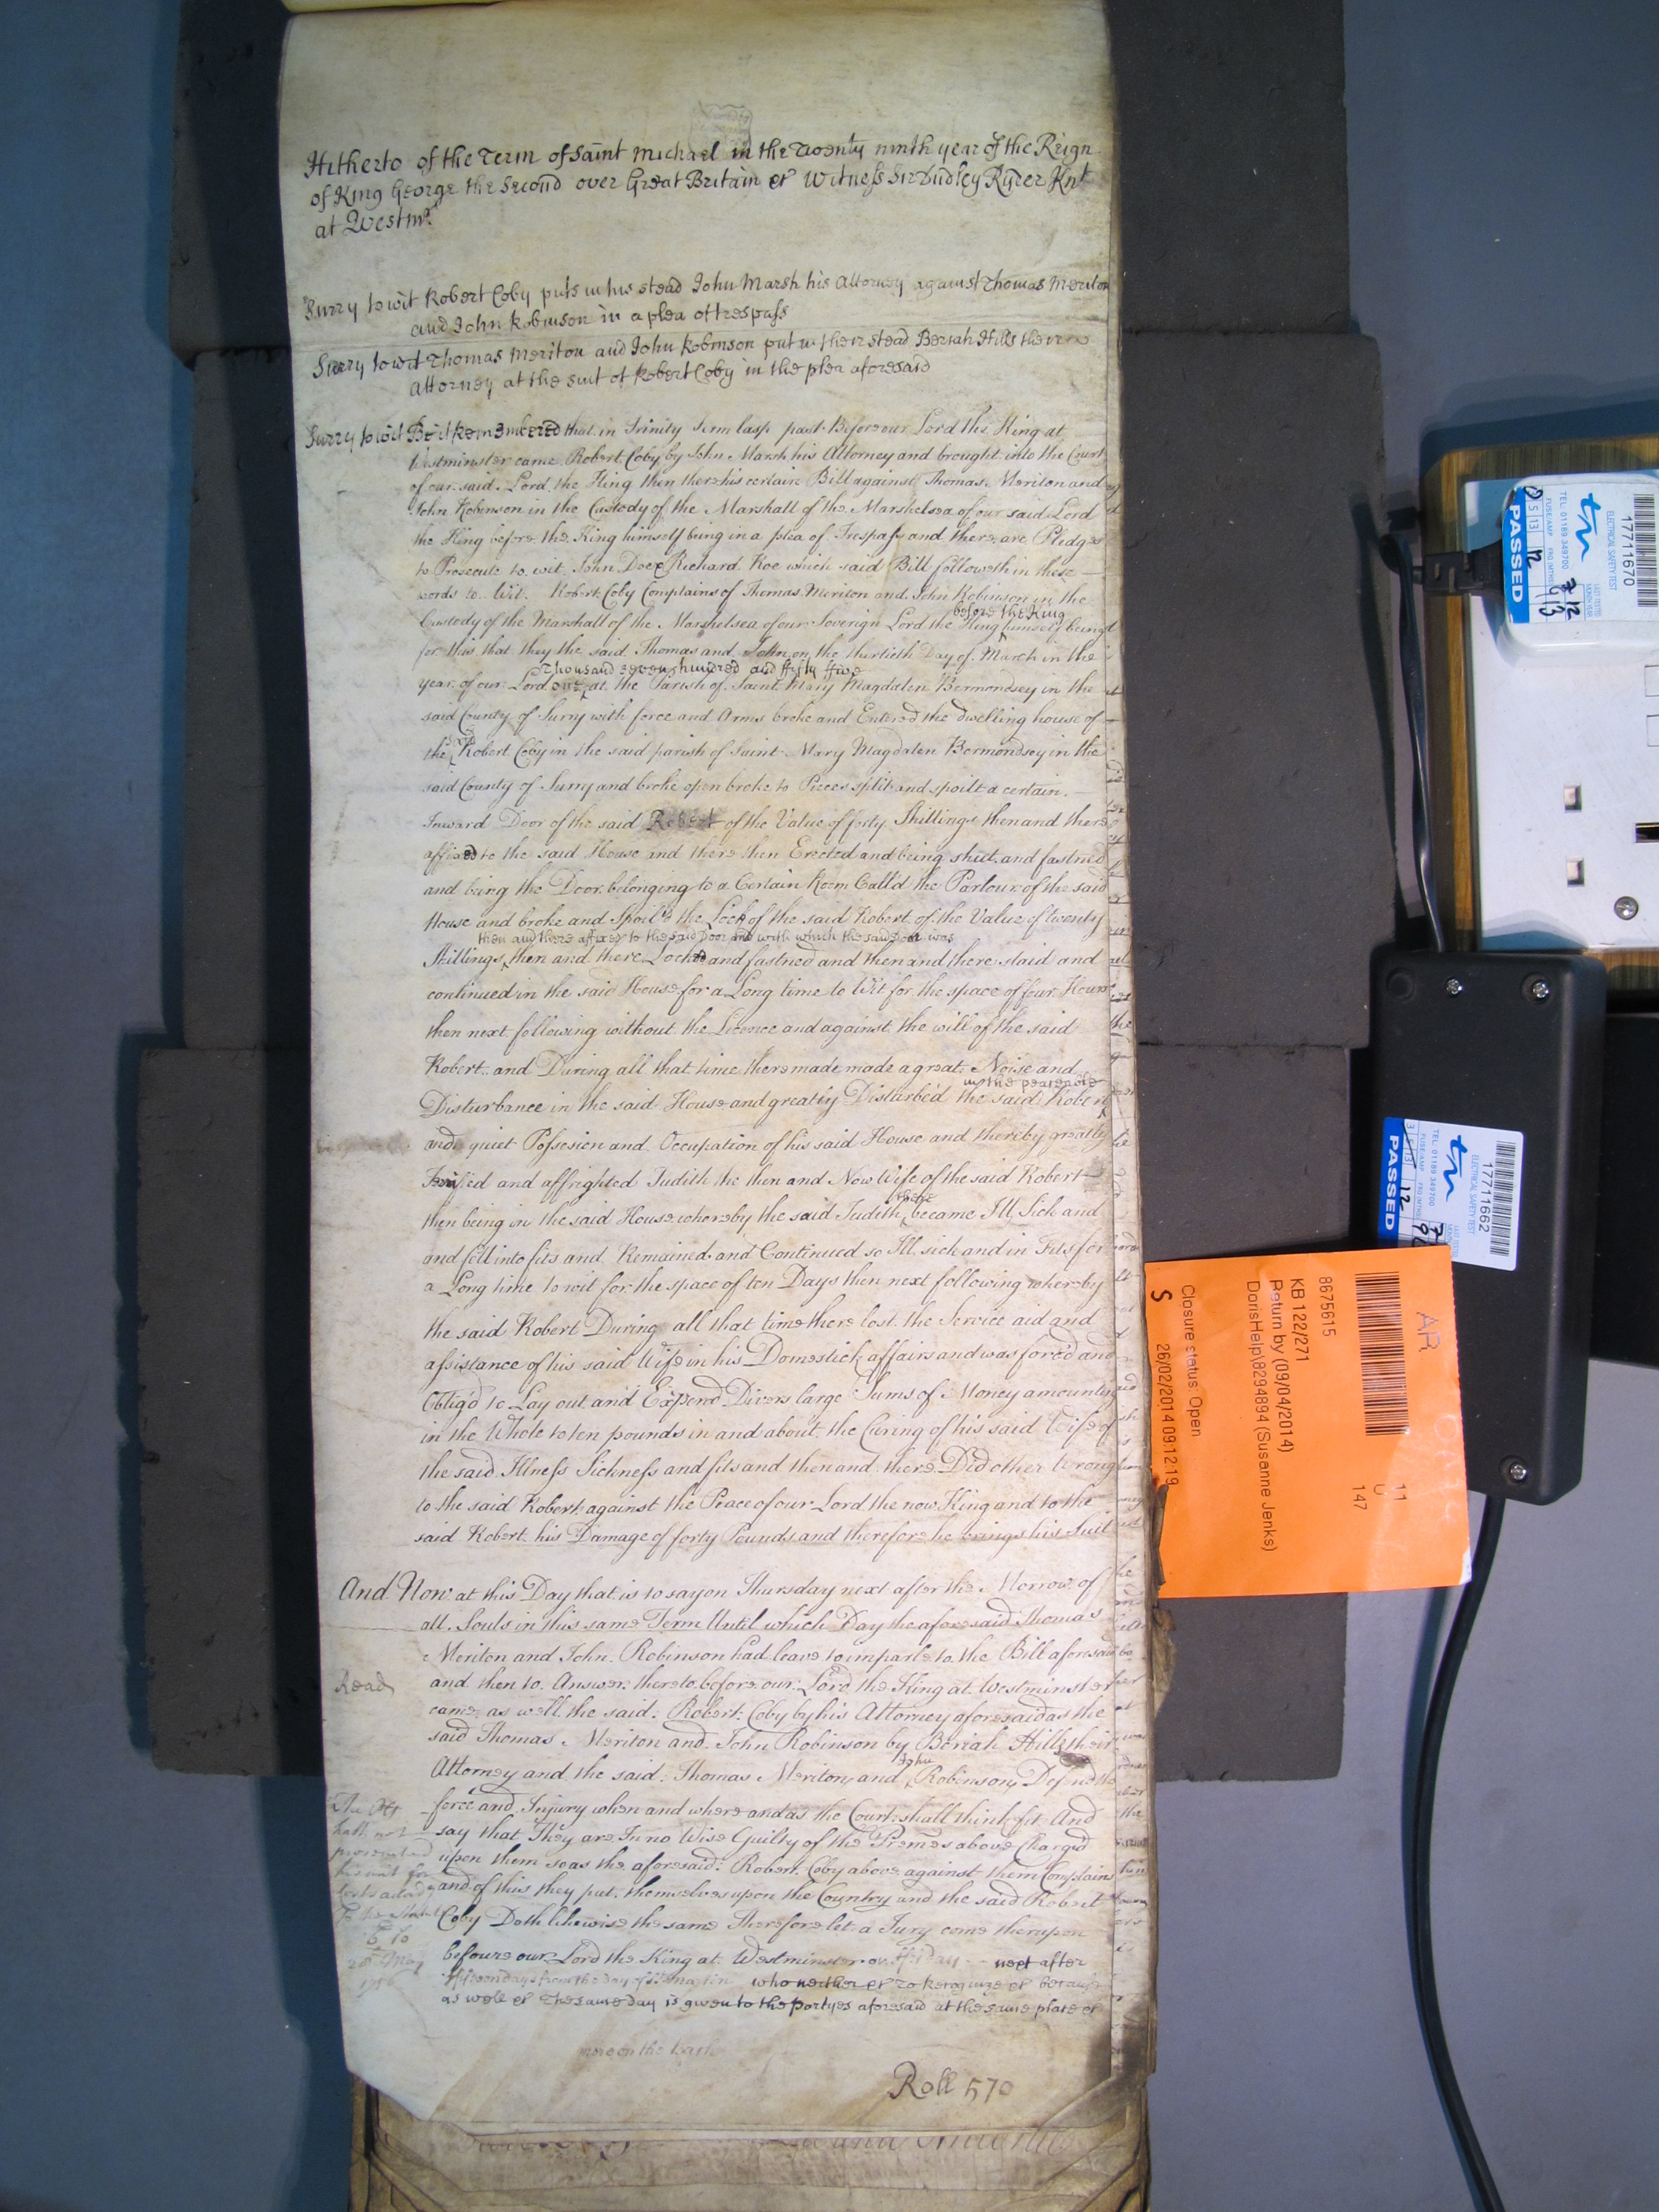 Hitherto of the Term of Saint Michael in the Twenty ninth year of the Reign
of King George the Second over Great Britain &c Witness Sr Dudley Ryder Knt
at Westmr
Surry to wit Robert Coby puts in his stead John Marsh his Attorney against Thomas Meriton
and John Robinson in a plea of trespass
Surry to wit Thomas Meriton and John Robinson put in their stead Beriah Hills their
Attorney at the suit of Robert Coby in the plea aforesaid
Surry to wit Be it Remembered that in Trinity Term last past Before our Lord the King at
Westminster came Robert Coby by John Marsh his Attorney and brought into the Court
of our said Lord the King then there his certain Bill against Thomas Meriton and
John Robinson in the Custody of the Marshall of the Marshelsea of our said Lord
the King before the King himself being in a plea of Trespass and there are Pledges
to Prosecute to wit John Doe & Richard Roe which said Bill followeth in these
words to Wit Robert Coby Complains of Thomas Meriton and John Robinson in the
before the King
Custody of the Marshall of the Marshelsea of our Soverign Lord the King himself being
for this that they the said Thomas and John on the thirtieth Day of March in the
Thousand seven hundred and fifty five
year of our Lord one at the Parish of Saint Mary Magdalen Bermondsey in the
said County of Surry with force and Arms broke and Entered the dwelling house of
the said Robert Coby in the said parish of Saint Mary Magdalen Bermondsey in the
said County of Surry and broke open broke to Pieces split and spoilt a certain
Inward Door of the said Robert of the Value of forty Shillings then and there
affixed to the said House and there then Erected and being shut and fastned
and being the Door belonging to a Certain Room Call'd the Parlour of the said
House and broke and Spoil'd the Lock of the said Robert of the Value of twenty
then and there affixed to the said Door and with which the said Door was
Shillings then and there Locked and fastned and then and there staid and
continued in the said House for a Long time to Wit for the space of four Hours
then next following without the Licence and against the will of the said
Robert and During all that time there made made a great Noise and
in the peaceable
Disturbance in the said House and greatly Disturbed the said Robert
and quiet Possesion and Occupation of his said House and thereby greatly
Terrified and affrighted Judith the then and Now Wife of the said Robert
there
then being in the said House whereby the said Judith became Ill Sick and
and fell into fits and Remained and Continued so Ill sick and in Fits for
a Long time to wit for the space of ten Days then next following whereby
the said Robert During all that time there lost the Service aid and
assistance of his said Wife in his Domestick affairs and was forced and
Oblig'd to Lay out and Expend Divers large Sums of Money amounting
in the Whole to ten pounds in and about the Curing of his said Wife of
the said Illness Sickness and fits and then and there Did other Wrongs
to the said Robert against the Peace of our Lord the now King and to the
said Robert his Damage of forty Pounds and therefore he brings his Suit
And Now at this Day that is to say on Thursday next after the Morrow of
all Souls in this same Term Until which Day the aforesaid Thomas
Meriton and John Robinson had leave to imparle to the Bill aforesaid
Read
and then to Answer thereto before our Lord the King at Westminster
came as well the said Robert Coby by his Attorney aforesaid as the
said Thomas Meriton and John Robinson by Beriah Hills their
John
Attorney and the said Thomas Meriton and Robinson Defend the
force and Injury when and where and as the Court shall think fit And
say that They are In no Wise Guilty of the Premes above Charged
upon them so as the aforesaid Robert Coby above against them Complains
and of this they put themselves upon the Country and the said Robert
Coby Doth likewise the same Therefore let a Jury come thereupon
before our Lord the King at Westminster on next after
who neither &c To Recognize &c because
as well &c The same day is given to the partyes aforesaid at the same place &c
more on the back
Roll 570
AR
11
147
867615
KB 122/271
Return by (09/04/2014)
DorisHelp\8294894 (Susanne Jenks)
Closure status: Open
S
26/02/2014 09:12:19
ELECTRICAL SAFETY TEST
17711670
TEL: 01189 349700
PASSED
ELECTRICAL SAFETY TEST
17711662
TEL: 01189 349700
PASSED